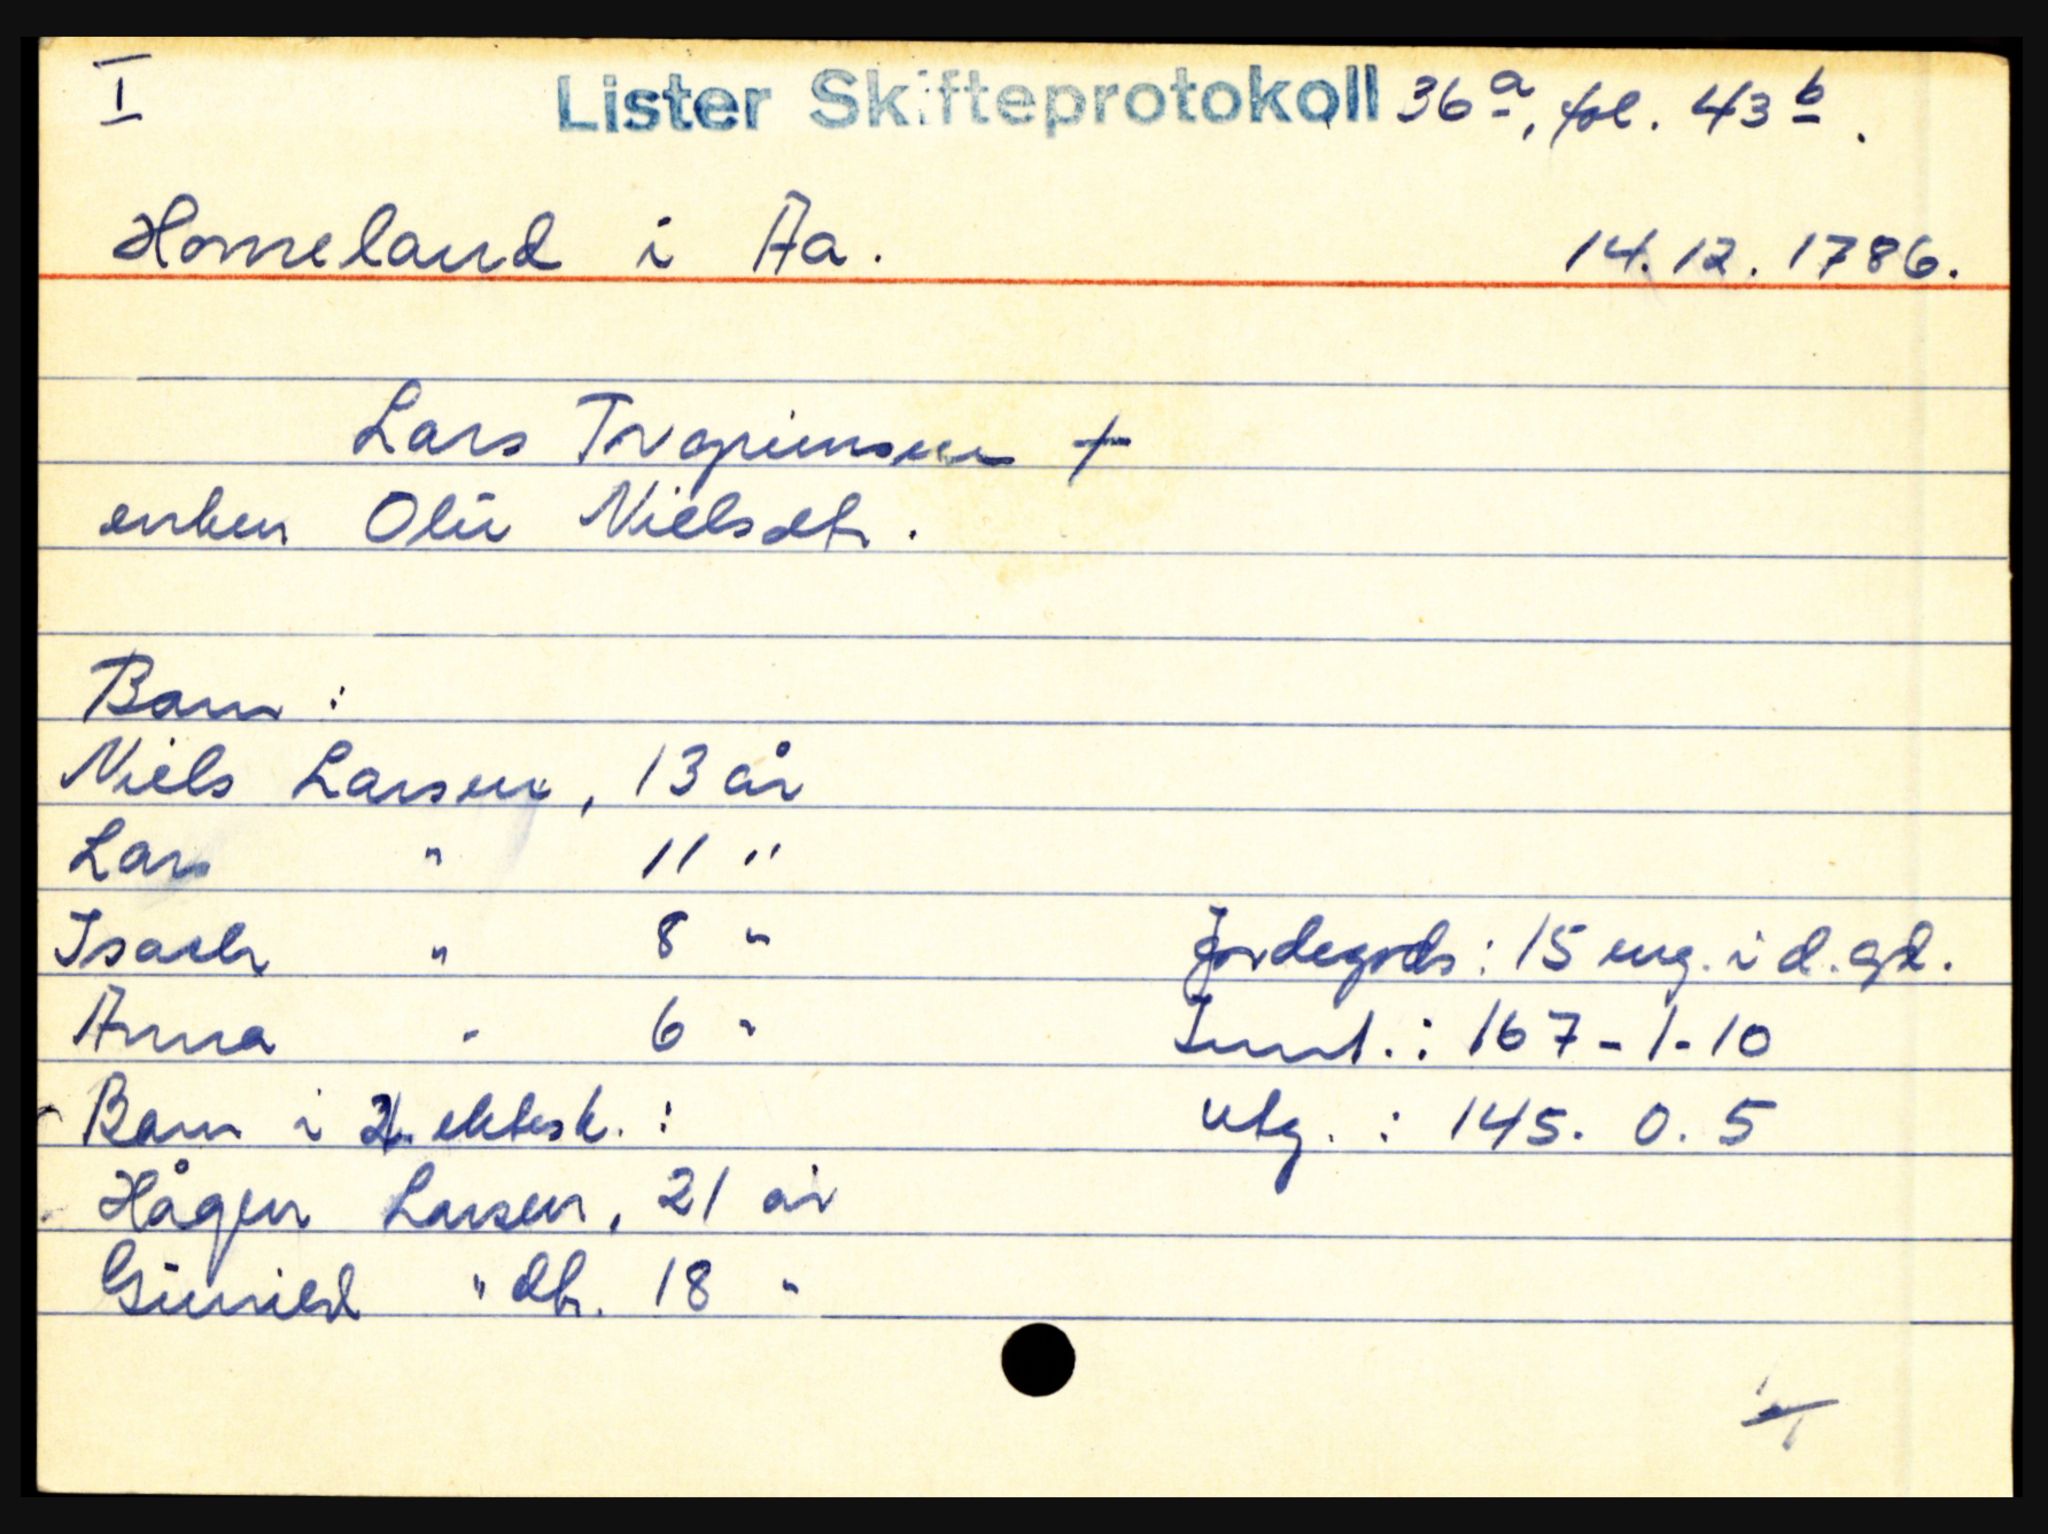 I
Lister Skifteprotokoll 36a, fol. 43b.
Homeland i Aa. 14.12.1786.
Lars Torgrimsen +
enken Olu Nielsdtr.
Barn:
Niels Larsen, 13 år
Lars " 11 "
Isach " 8 "
Anna " 6 "
Barn i 2. ektesk.:
Hågen Larsen, 21 år
Gunild " dtr. 18 "
Jordegods: 15 eng. i d. gd.
Innt.: 167-1-10
Utg.: 145. 0. 5